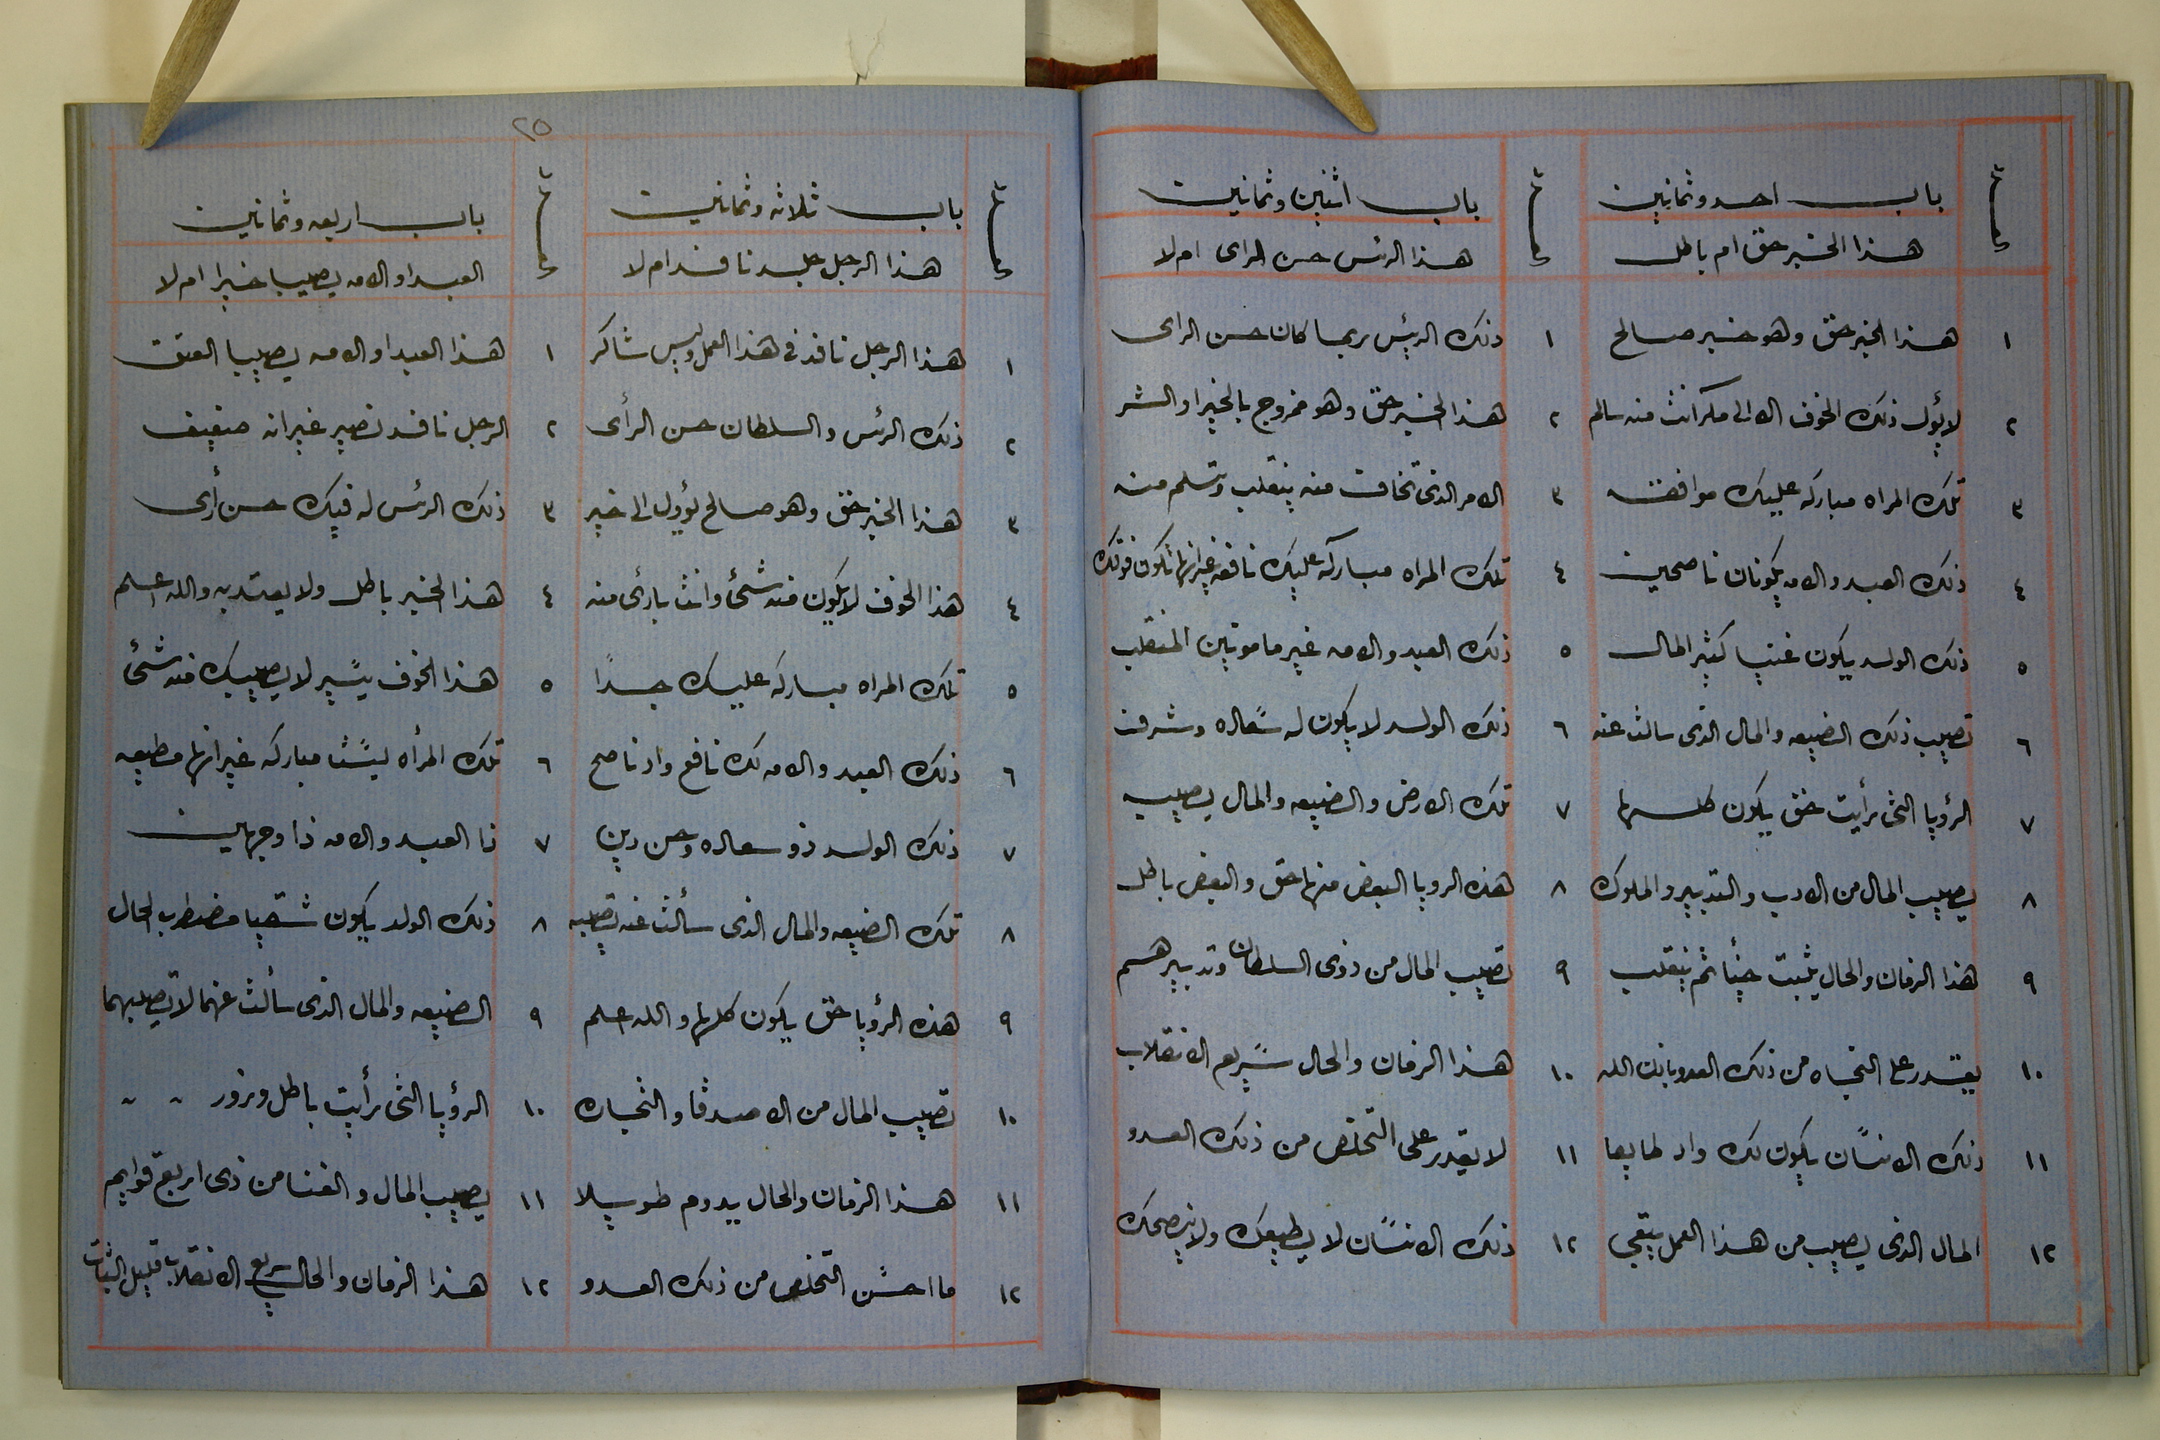 باب احد وثمانين
هذا الخبر حق ام باطل
١ هذا الخبر حق وهو خبر صالح
٢ لا يؤل ذلك الخوف الا الى مكر انت منه سالم
٣ تلك المراه مباركه عليك موافقه
٤ ذلك العبد والامه يكونان ناصحين
٥ ذلك الولد يكون غنيا كثير المال
٦ تصيب ذلك الضيعه والمال الذى سالت عنه
٧ الرؤيا التى رأيت حق يكون كلها
٨ يصيب المال من الادب والتدبير والملوك
٩ هذا الزمان والحال يثبت حينأ ثم ينقلب
١٠ يقدر على النجاه من ذلك العدو باذن الله
١١ ذلك الانسان يكون لك واد طايعا
١٢ المال الذى يصيب من هذا العمل يبقى
باب اثنين وثمانين
هذا الرئس حسن الراى ام لا
١ ذلك الريئس ربما كان حسن الراى
٢ هذا الخبر حق وهو ممزوج بالخير او الشر
٣ الامر الذى تخاف منه ينقلب وتسلم منه
٤ تلك المراه مباركه عليك نافعه غير انها تكون فوتك
٥ ذلك العبد والامه غير مامونين المنقلب
٦ ذلك الولد لا يكون له سعاده وشرف
٧ تلك الارض والضيعه والمال يصيبه
٨ هذه الرويا البعض منها حق والبعض باطل
٩ تصيب المال من ذوى السلطان وتدبيرهم
١٠ هذا الزمان والحال سريع الانقلاب
١١ لا يقدر على التخلص من ذلك العدو
١٢ ذلك الانسان لا يطيعك ولا ينصحك
٢٥
باب ثلاثه وثمانين
هذا الرجل جلد نافد ام لا
١ هذا الرجل نافد فى هذا العمل وليس شاكر
٢ ذلك الرئس والسلطان حسن الرأى
٣ هذا الخبر حق وهو صالح يؤول الى خير
٤ هذا الخوف لا يكون منه شئ وانت بارئ منه
٥ تلك المراه مباركه عليك جدًا
٦ ذلك العبد والامه لك نافع واد ناصح
٧ ذلك الولد ذو سعاده وحسن دين
٨ تلك الضيعه والمال الذى سألت عنه تصيبه
٩ هذه الرؤيا حق يكون كلها والله اعلم
١٠ تصيب المال من الاصدقا والتجاره
١١ هذا الزمان والحال يدوم طويلا
١٢ ما احسن التخلص من ذلك العدو
باب اربعه وثمانين
العبد او الامه يصيبا خيرا ام لا
١ هذا العبد او الامه يصيبا العتق
٢ الرجل نافد بصير غير انه ضعيف
٣ ذلك الرئس له فيك حسن رأى
٤ هذا الخبر باطل ولا يعتد به والله اعلم
٥ هذا الخوف يسير لا يصيبك منه شئ
٦ تلك المرأه ليست مباركه غير انها مطيعه
٧ ذا العبد والامه ذا وجهين
٨ ذلك الولد يكون شقيا مضطرب الحال
٩ الضيعه والمال الذى سألت عنهما لا تصيبهما
١٠ الرؤيا التى رأيت باطل وزور
١١ يصيب المال والغنا من ذى اربع قوايم
١٢ هذا الزمان والحال سريع الانقلاب قليل الثبات